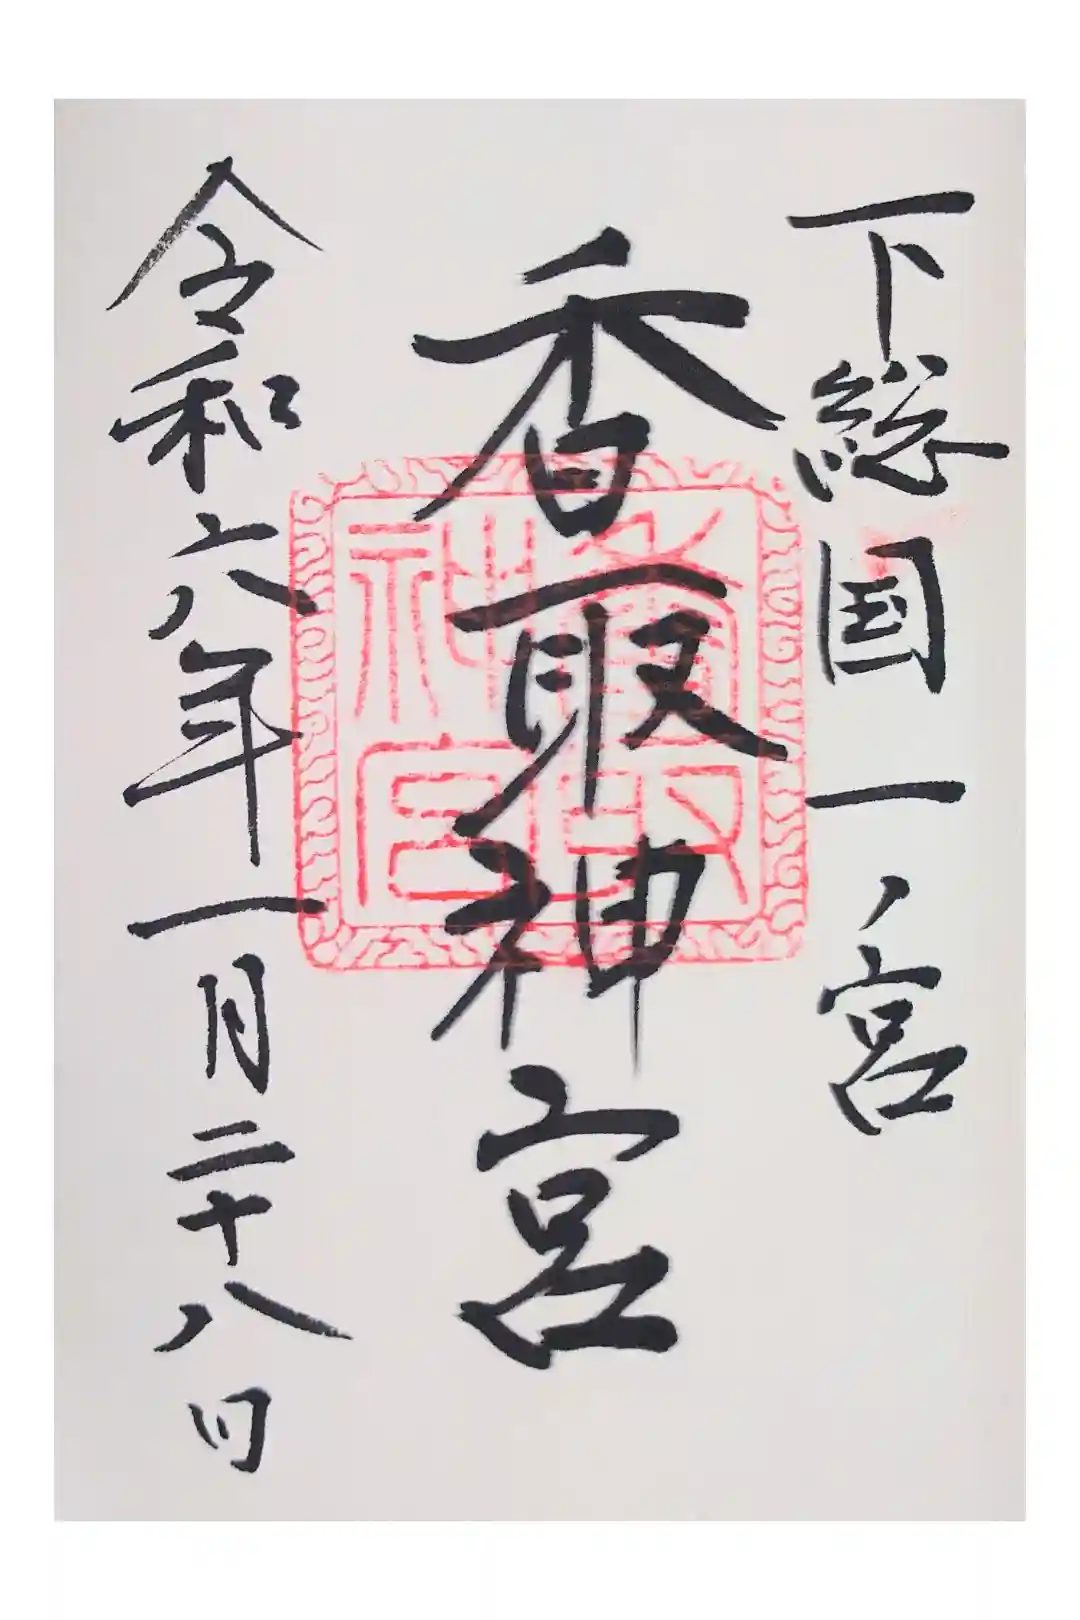 下総国一ノ宮
香取神宮
令和六年一月二十八日
香取神宮